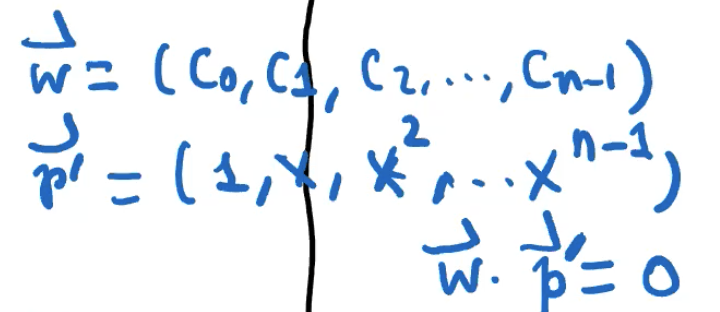 w⃗ = (C₀, C₁, C₂, ..., Cₙ₋₁)
p⃗' = (1, x, x², ... xⁿ⁻¹)
w⃗ · p⃗' = 0